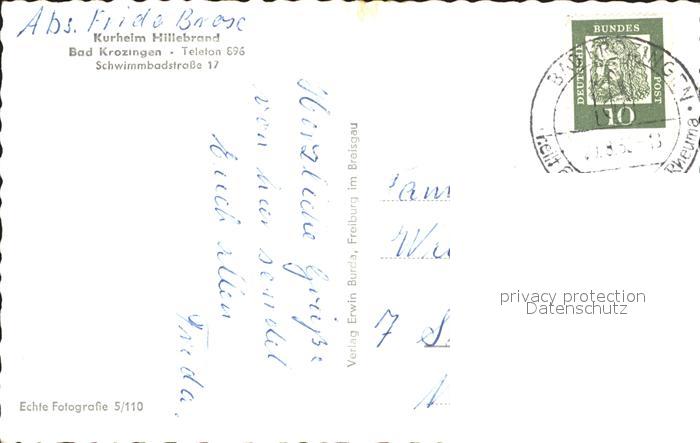 Abs. Frida Brose
Kurheim Hillebrand
Bad Krozingen • Telefon 896
Schwimmbadstraße 17
Herzliche Grüße
von hier sendet
Euch allen
Frida.
Verlag Erwin Burda, Freiburg im Breisgau
Echte Fotografie 5/110
DEUTSCHE BUNDES POST
10
BAD KROZINGEN
heilt
Rheuma
Fam
7
privacy protection
Datenschutz